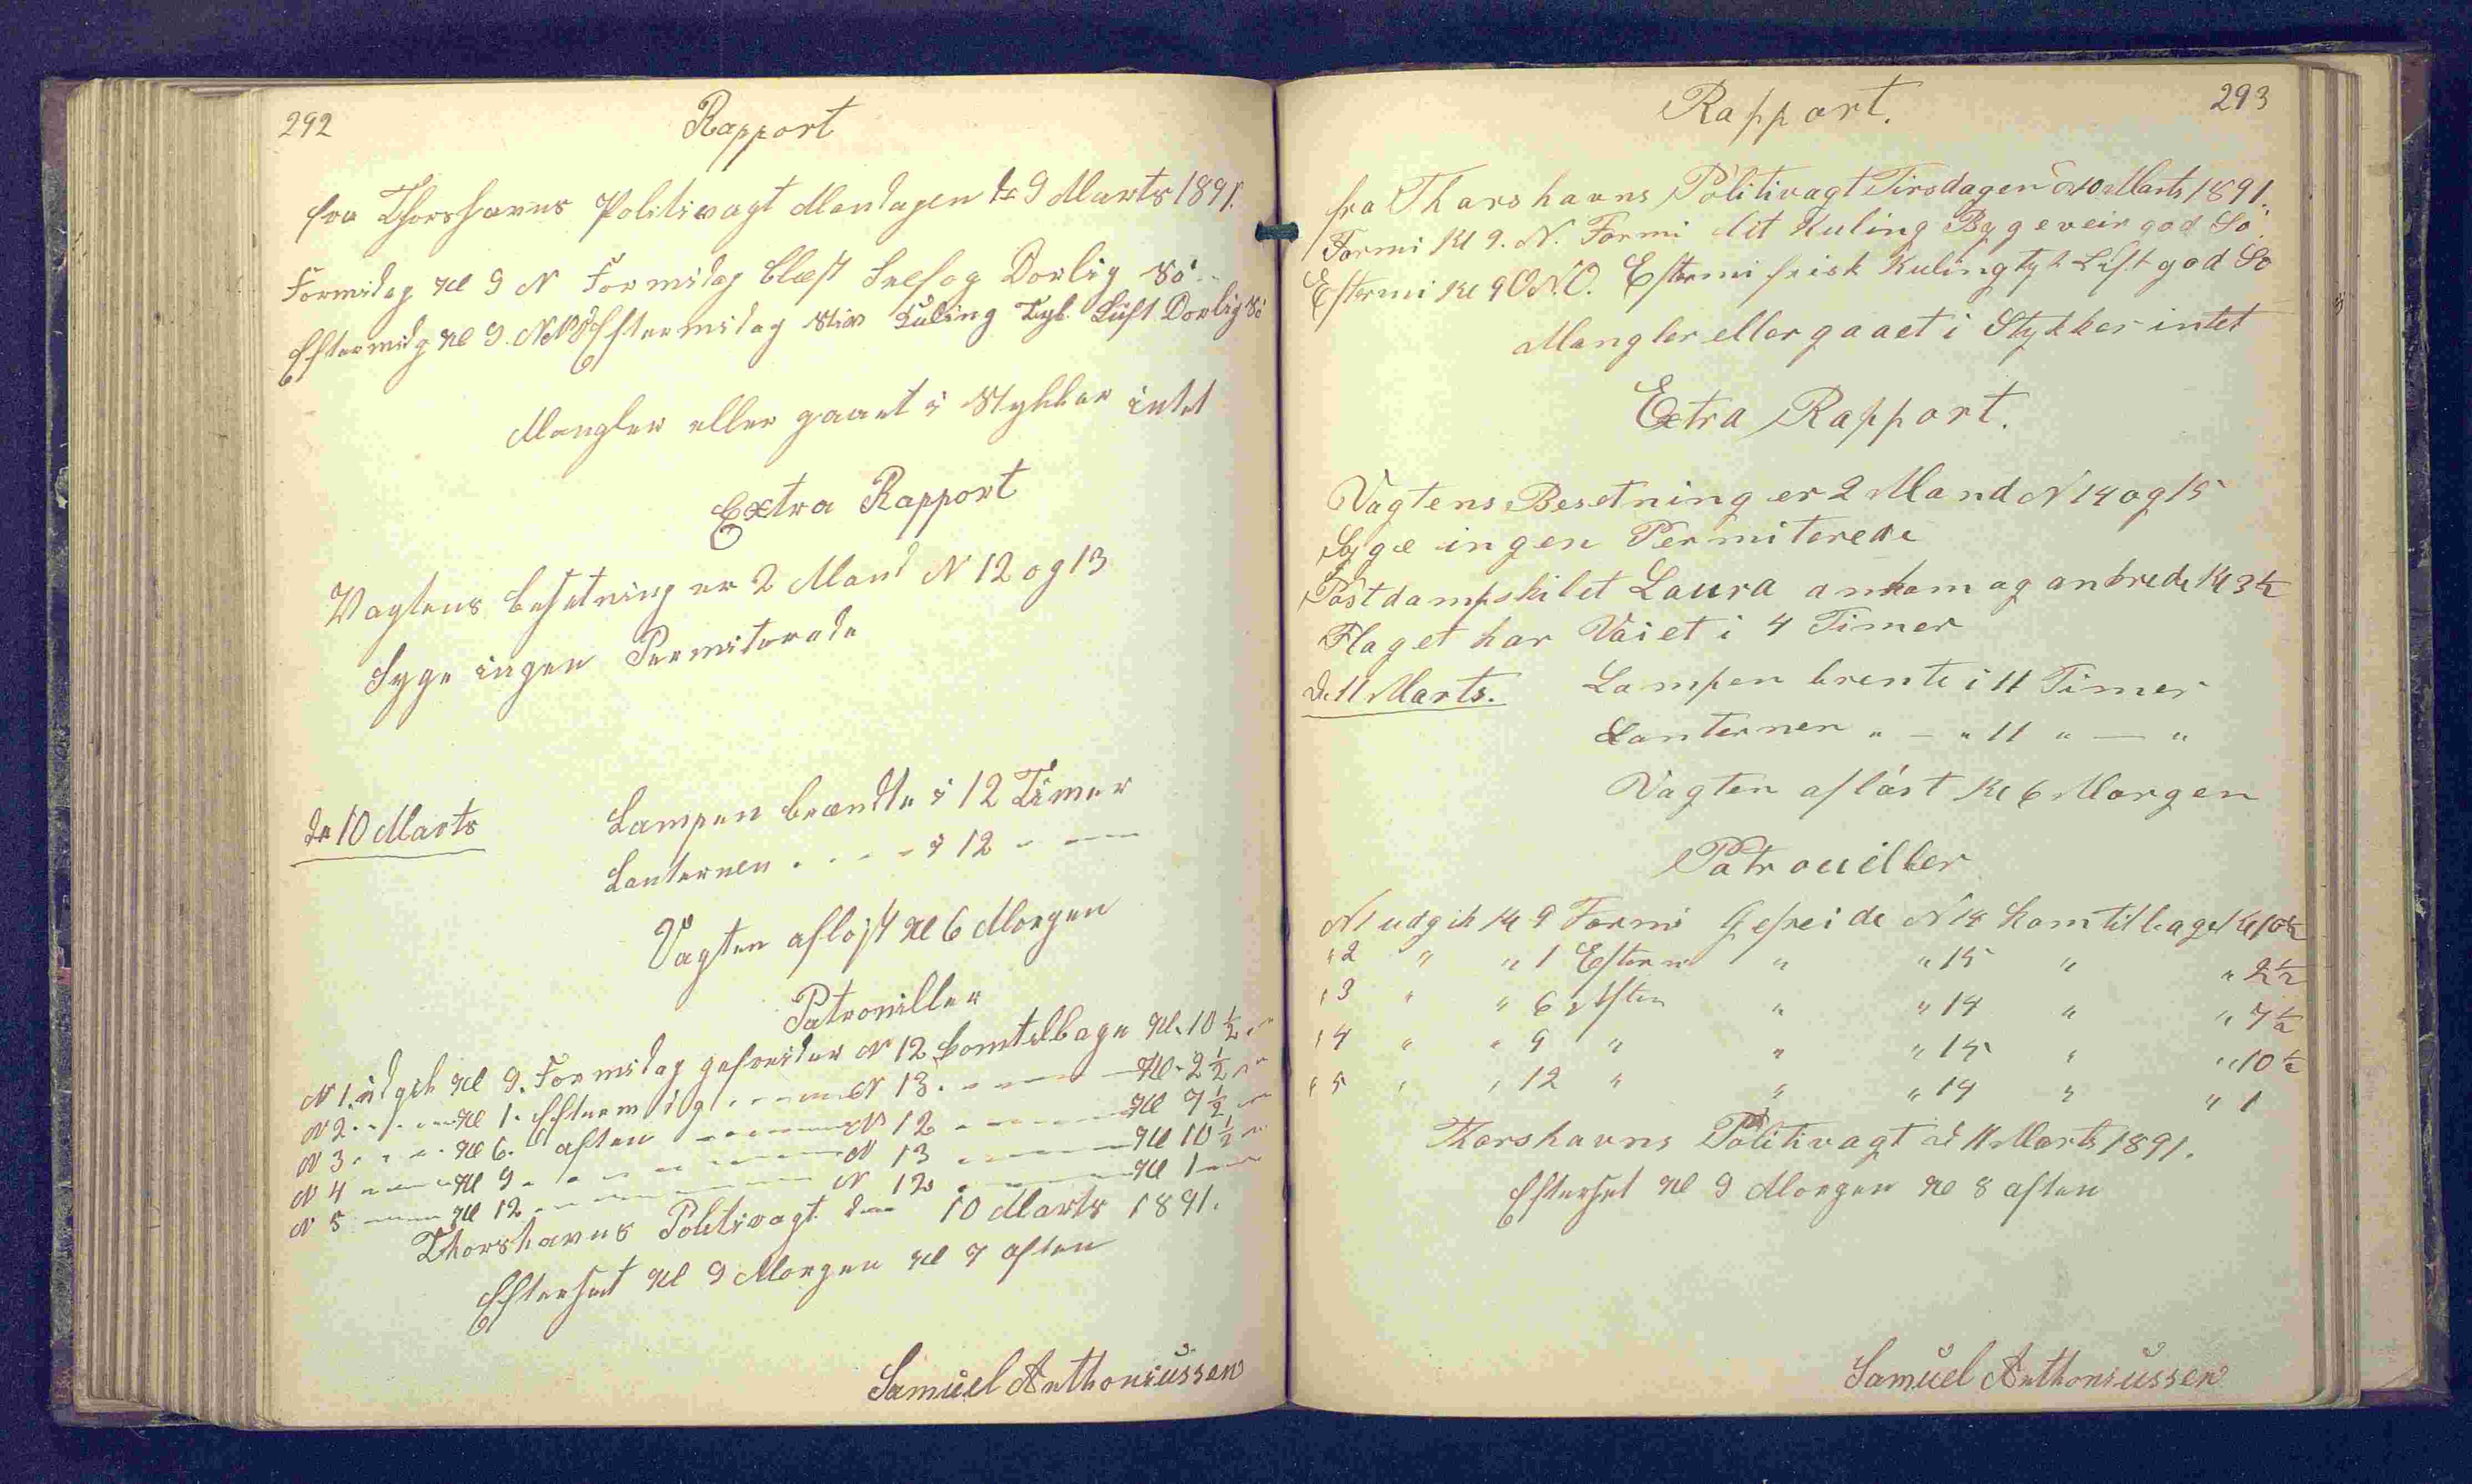 292
Rapport
fra Thorshavns Politivagt Mandagen d 9 Marts 1891.
Formidag Kl 9 N Formidag blæst Snefog Dorlig Sö
Eftermidg Kl 9. NNO Eftermidag Stiv Kuling Tyk Luft Dorlig Sö
Mangler eller gaaet i Stykker intet
Extra Rapport
Vagtens besetning er 2 Mand N 12 og 13
Syge ingen Permiterede
de 10 Marts
Lampen brændte i 12 Timer
Lanternen - - - - i 12 - —
Vagten afløst Kl 6 Morgen
Patrouiller
N 1. udgik Kl 9. Formidag gefreider N 12 komtilbage Kl. 10 1/2
N 2 - - - Kl 1. Eftermidg - - - N 13 - - - Kl. 2 1/2
N 3 - - - Kl 6. aften - - - N 12 - - - Kl 7 1/2
N 4 - - - Kl 9 - - - N 13 - - - Kl 10 1/2
N 5 - - - Kl 12 - - - N 12 - - - Kl 1
Thorshavns Politivagt den 10 Marts 1891.
Efterset Kl 9 Morgen Kl 7 aften
Samuel Anthoniussen
293
Rapport.
fra Thorshavns Politivagt Tirsdagen d 10 Marts 1891.
Formi Kl 9. N. Formi lit Kuling Bygeveir god Sö.
Eftermi Kl 9 O.N.O. Eftermi frisk Kuling tyk Luft god So
Mangler eller gaaet i Stykker intet
Extra Rapport.
Vagtens Besetning er 2 Mand N 14 og 15
Syge ingen Permiterede
Postdampskibet Laura ankom og ankrede Kl 3 1/2
Flaget har Vaiet i 4 Timer
de 11 Marts.
Lampen brente i 11 Timer
Lanternen " — " 11 " — "
Vagten aflöst Kl 6 Morgen
Patrouiller
N1 udgik Kl 9 Formi Gefreide N 14 kom tilbage Kl 10 1/2
" 2 " " 1 Efterm " " 15 " " 2 1/2
" 3 " " 6 Aften " " 14 " " 7 1/2
" 4 " " 9 " " " 15 " " 10 1/2
" 5 " " 12 " " " 14 " " 1
Thorshavns Politivagt d 11 Marts 1891.
Efterset Kl 9 Morgen Kl 8 aften
Samuel Anthoniussen